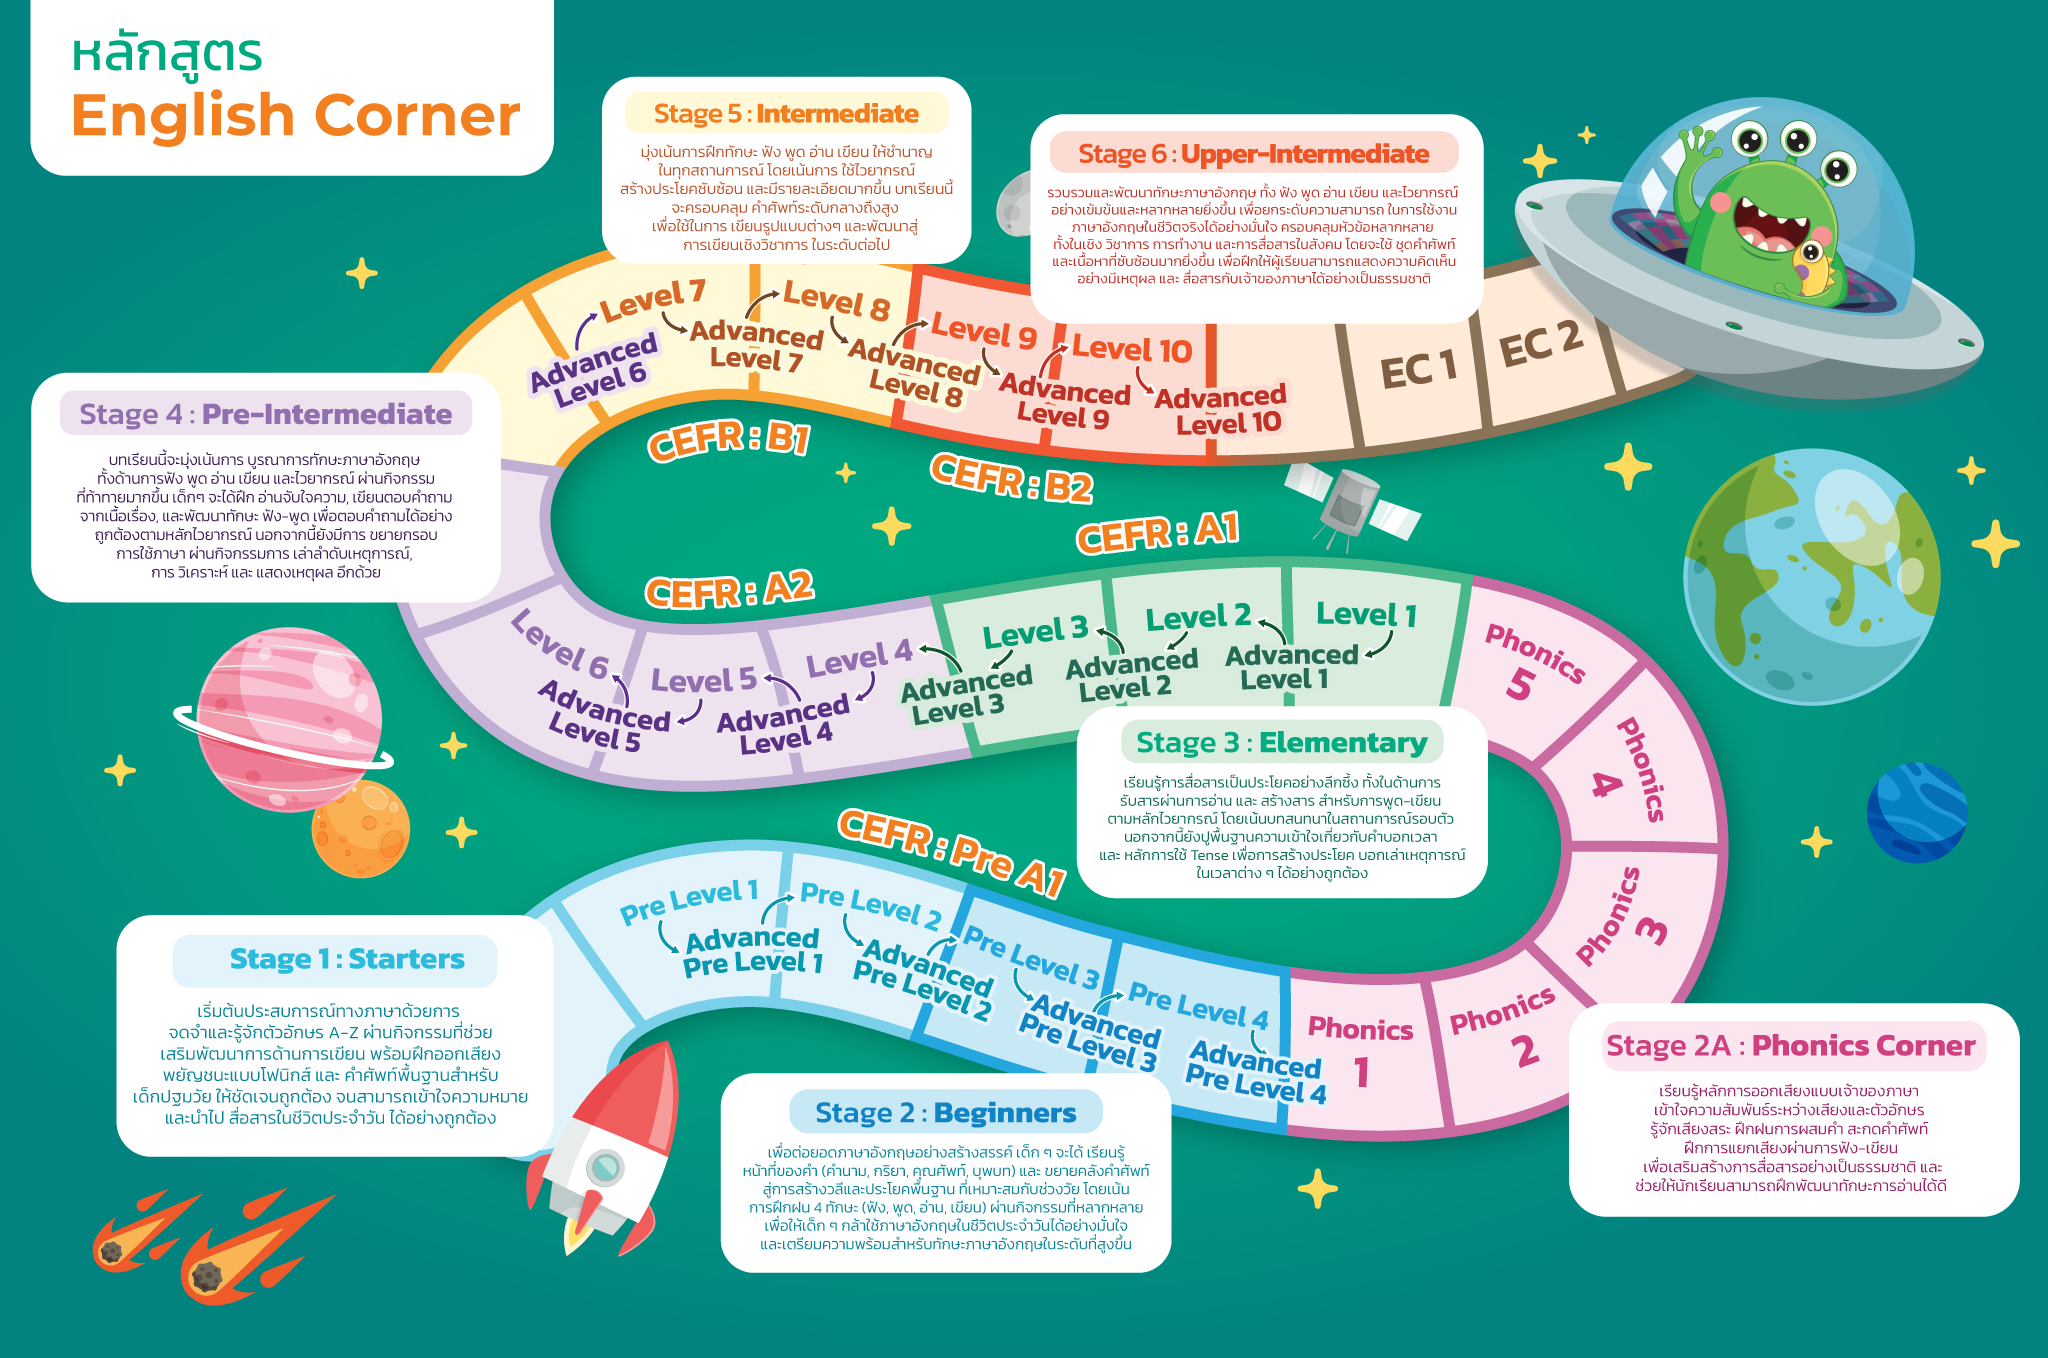 หลักสูตร
English Corner
Stage 5 : Intermediate
มุ่งเน้นการฝึกทักษะ ฟัง พูด อ่าน เขียน ให้ชำนาญ
ในทุกสถานการณ์ โดยเน้นการ ใช้ไวยากรณ์
สร้างประโยคซับซ้อน และมีรายละเอียดมากขึ้น บทเรียนนี้
จะครอบคลุม คำศัพท์ระดับกลางถึงสูง
เพื่อใช้ในการ เขียนรูปแบบต่างๆ และพัฒนาสู่
การเขียนเชิงวิชาการ ในระดับต่อไป
Stage 6 : Upper-Intermediate
รวบรวมและพัฒนาทักษะภาษาอังกฤษ ทั้ง ฟัง พูด อ่าน เขียน และไวยากรณ์
อย่างเข้มข้นและหลากหลายยิ่งขึ้น เพื่อยกระดับความสามารถ ในการใช้งาน
ภาษาอังกฤษในชีวิตจริงได้อย่างมั่นใจ ครอบคลุมหัวข้อหลากหลาย
ทั้งในเชิง วิชาการ การทำงาน และการสื่อสารในสังคม โดยจะใช้ ชุดคำศัพท์
และเนื้อหาที่ซับซ้อนมากยิ่งขึ้น เพื่อฝึกให้ผู้เรียนสามารถแสดงความคิดเห็น
อย่างมีเหตุผล และ สื่อสารกับเจ้าของภาษาได้อย่างเป็นธรรมชาติ
Advanced
Level 6
Level 7
Advanced
Level 7
Level 8
Advanced
Level 8
Level 9
Advanced
Level 9
Level 10
Advanced
Level 10
EC 1
EC 2
CEFR : B1
CEFR : B2
Stage 4 : Pre-Intermediate
บทเรียนนี้จะมุ่งเน้นการ บูรณาการทักษะภาษาอังกฤษ
ทั้งด้านการฟัง พูด อ่าน เขียน และไวยากรณ์ ผ่านกิจกรรม
ที่ท้าทายมากขึ้น เด็กๆ จะได้ฝึก อ่านจับใจความ, เขียนตอบคำถาม
จากเนื้อเรื่อง, และพัฒนาทักษะ ฟัง-พูด เพื่อตอบคำถามได้อย่าง
ถูกต้องตามหลักไวยากรณ์ นอกจากนี้ยังมีการ ขยายกรอบ
การใช้ภาษา ผ่านกิจกรรมการ เล่าลำดับเหตุการณ์,
การ วิเคราะห์ และ แสดงเหตุผล อีกด้วย
CEFR : A2
CEFR : A1
Level 6
Advanced
Level 5
Level 5
Advanced
Level 4
Level 4
Advanced
Level 3
Level 3
Advanced
Level 2
Level 2
Advanced
Level 1
Level 1
Phonics
5
Phonics
4
Phonics
3
Phonics
2
Phonics
1
Stage 3 : Elementary
เรียนรู้การสื่อสารเป็นประโยคอย่างลึกซึ้ง ทั้งในด้านการ
รับสารผ่านการอ่าน และ สร้างสาร สำหรับการพูด-เขียน
ตามหลักไวยากรณ์ โดยเน้นบทสนทนาในสถานการณ์รอบตัว
นอกจากนี้ยังปูพื้นฐานความเข้าใจเกี่ยวกับคำบอกเวลา
และ หลักการใช้ Tense เพื่อการสร้างประโยค บอกเล่าเหตุการณ์
ในเวลาต่าง ๆ ได้อย่างถูกต้อง
CEFR : Pre A1
Pre Level 1
Advanced
Pre Level 1
Pre Level 2
Advanced
Pre Level 2
Pre Level 3
Advanced
Pre Level 3
Pre Level 4
Advanced
Pre Level 4
Stage 1 : Starters
เริ่มต้นประสบการณ์ทางภาษาด้วยการ
จดจำและรู้จักตัวอักษร A-Z ผ่านกิจกรรมที่ช่วย
เสริมพัฒนาการด้านการเขียน พร้อมฝึกออกเสียง
พยัญชนะแบบโฟนิกส์ และ คำศัพท์พื้นฐานสำหรับ
เด็กปฐมวัย ให้ชัดเจนถูกต้อง จนสามารถเข้าใจความหมาย
และนำไป สื่อสารในชีวิตประจำวัน ได้อย่างถูกต้อง
Stage 2 : Beginners
เพื่อต่อยอดภาษาอังกฤษอย่างสร้างสรรค์ เด็ก ๆ จะได้ เรียนรู้
หน้าที่ของคำ (คำนาม, กริยา, คุณศัพท์, บุพบท) และ ขยายคลังคำศัพท์
สู่การสร้างวลีและประโยคพื้นฐาน ที่เหมาะสมกับช่วงวัย โดยเน้น
การฝึกฝน 4 ทักษะ (ฟัง, พูด, อ่าน, เขียน) ผ่านกิจกรรมที่หลากหลาย
เพื่อให้เด็ก ๆ กล้าใช้ภาษาอังกฤษในชีวิตประจำวันได้อย่างมั่นใจ
และเตรียมความพร้อมสำหรับทักษะภาษาอังกฤษในระดับที่สูงขึ้น
Stage 2A : Phonics Corner
เรียนรู้หลักการออกเสียงแบบเจ้าของภาษา
เข้าใจความสัมพันธ์ระหว่างเสียงและตัวอักษร
รู้จักเสียงสระ ฝึกฝนการผสมคำ สะกดคำศัพท์
ฝึกการแยกเสียงผ่านการฟัง-เขียน
เพื่อเสริมสร้างการสื่อสารอย่างเป็นธรรมชาติ และ
ช่วยให้นักเรียนสามารถฝึกพัฒนาทักษะการอ่านได้ดี